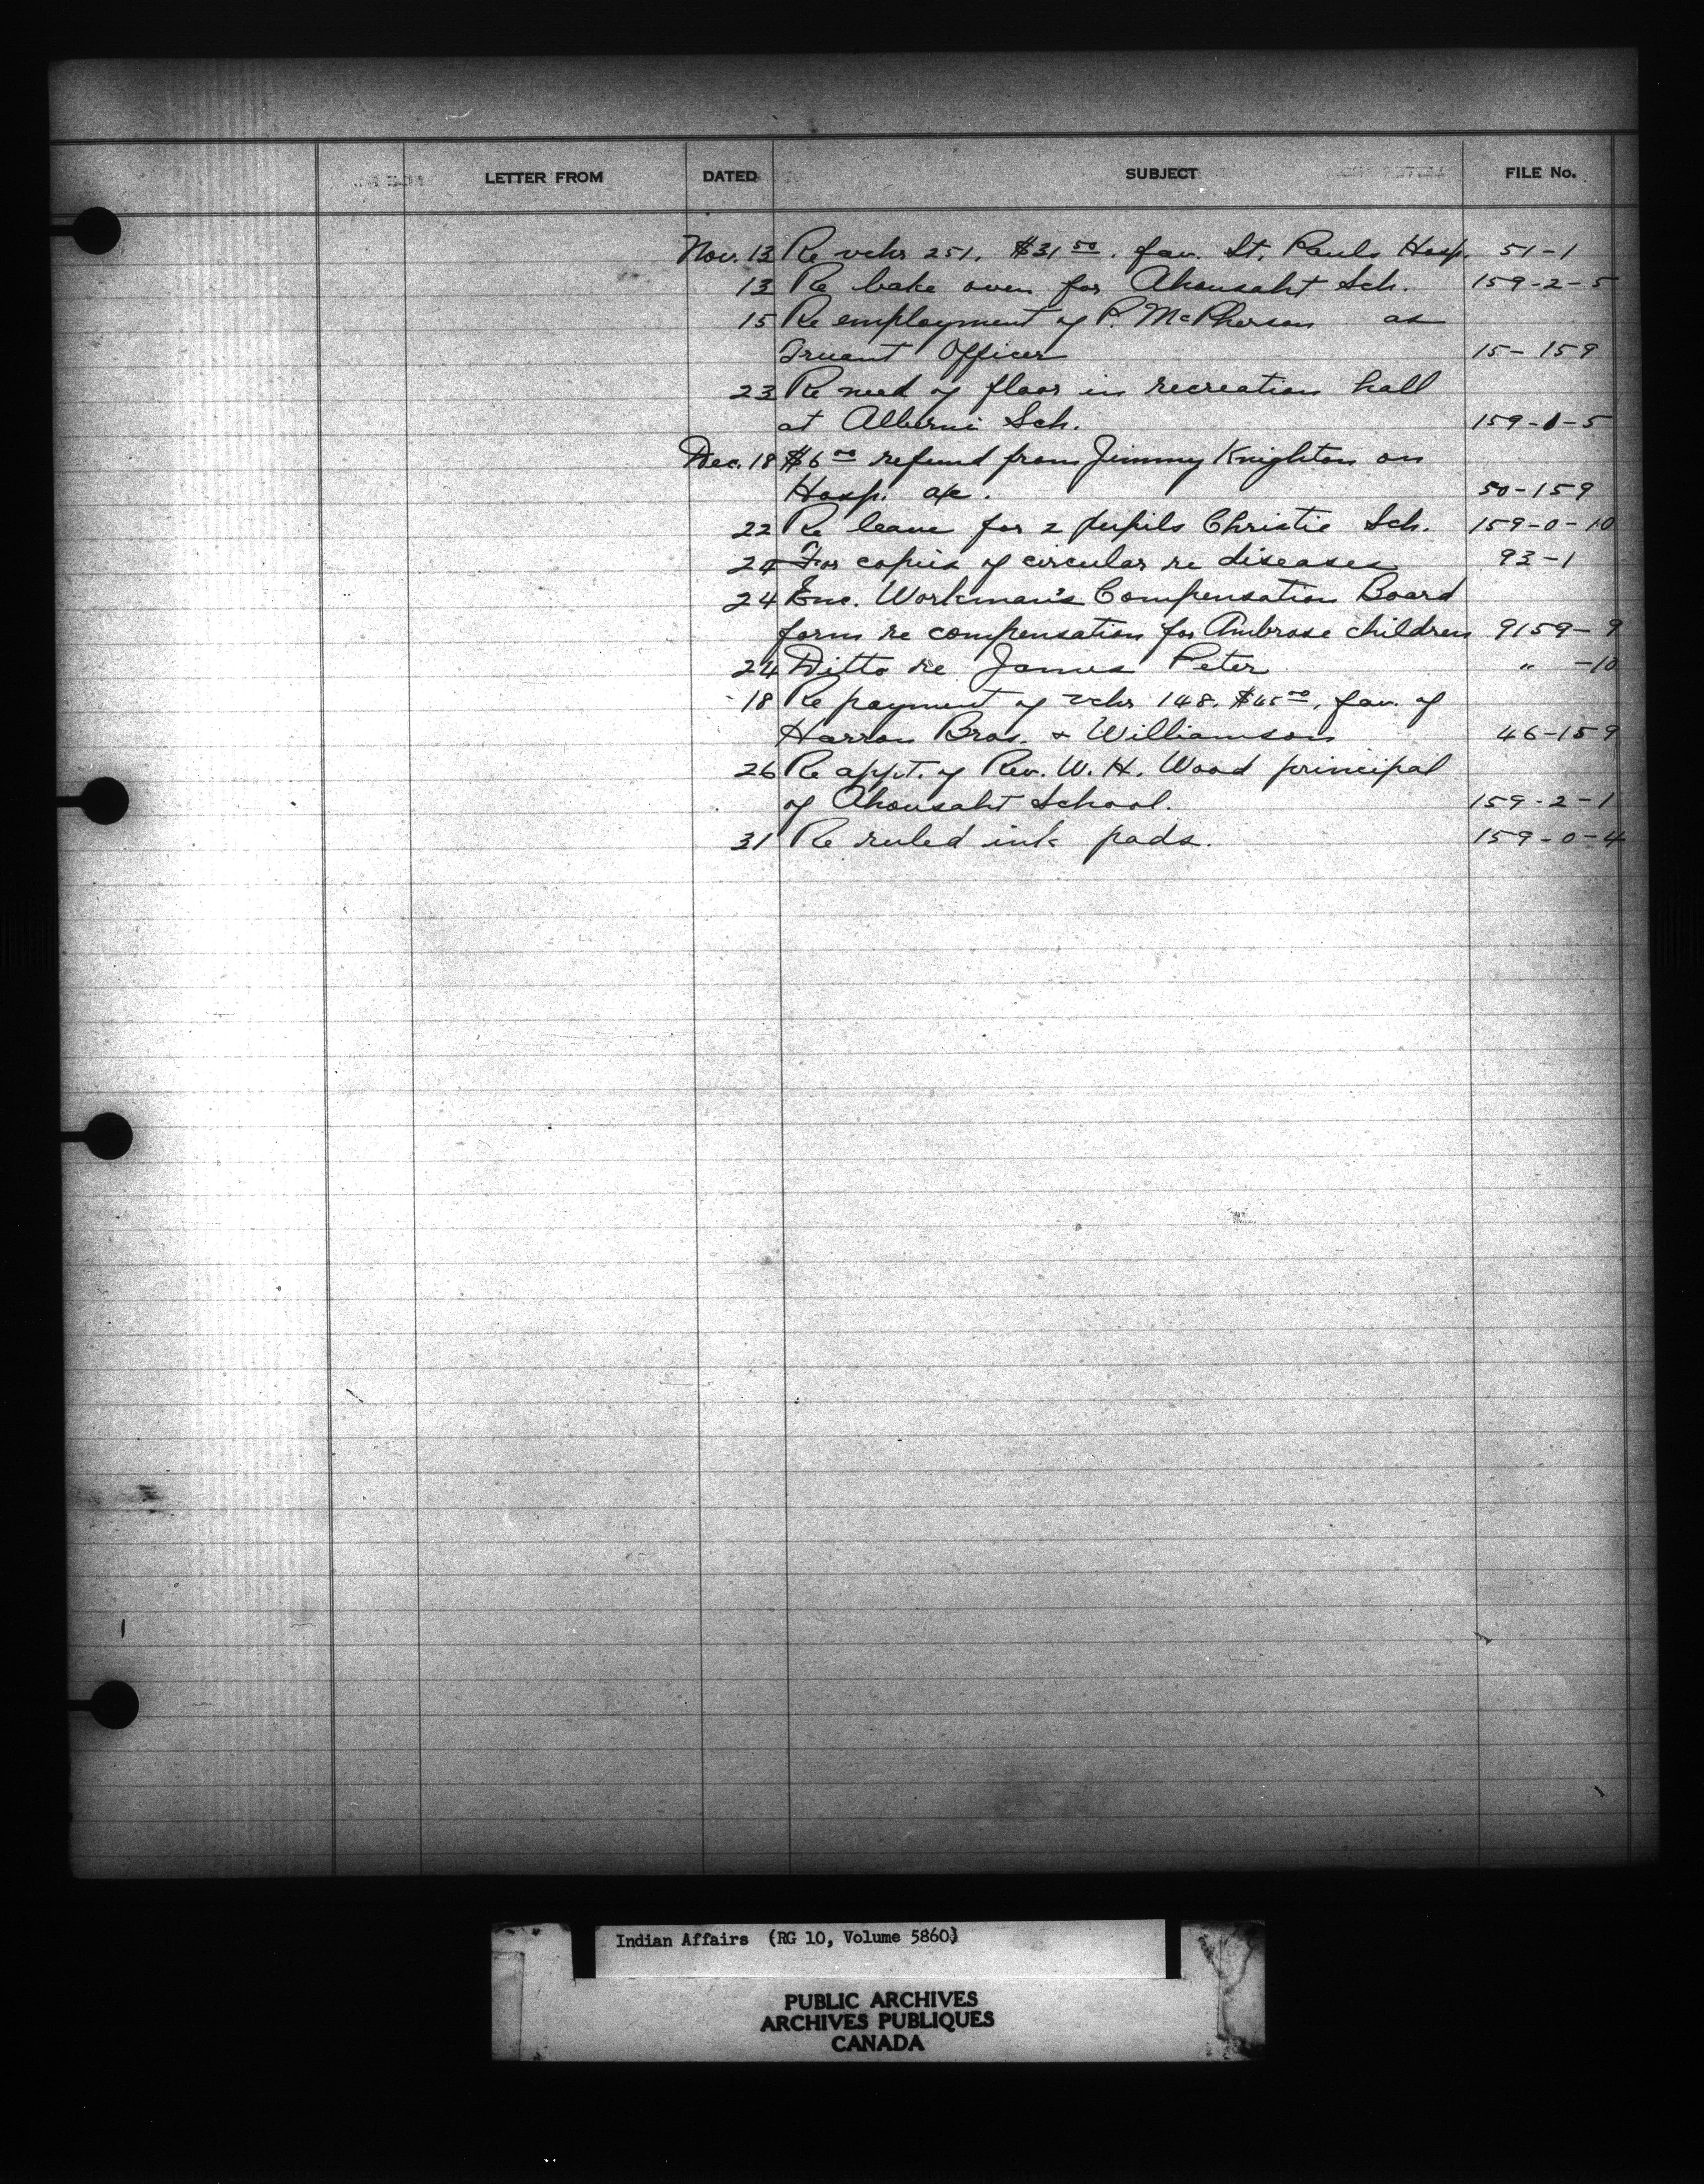 LETTER FROM DATED SUBJECT FILE No.
Nov. 13 Re vchr 251. $31 50. fav. St. Pauls Hosp. 51-1
13 Re bake oven for Ahousaht Sch. 159-2-5
15 Re employment of P. McPherson as
Truant Officer 15-159
23 Re need of floor in recreation hall
at Alberni Sch. 159-1-5
Dec. 18 $6 00 refund from Jimmy Knighton on
Hosp. a/c. 50-159
22 Re leave for 2 pupils Christie Sch. 159-0-10
24 For copies of circular re diseases 93-1
24 Enc. Workman's Compensation Board
form re compensation for Ambrose children 9159-9
24 Ditto re James Peter " -10
18 Re payment of vchr 148. $65 00. fav. of
Harron Bros. & Williamson 46-159
26 Re appt. of Rev. W. H. Wood principal
of Ahousaht School. 159-2-1
31 Re ruled ink pads. 159-0-4
Indian Affairs (RG 10, Volume 5860)
PUBLIC ARCHIVES
ARCHIVES PUBLIQUES
CANADA